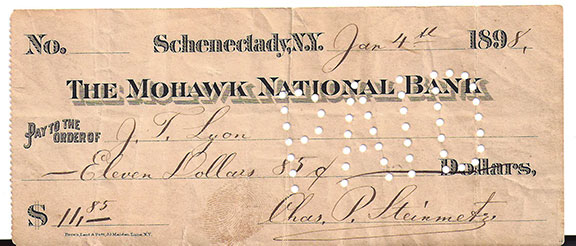 No. Schenectady, N.Y. Jan 4th 1898,
THE MOHAWK NATIONAL BANK
PAY TO THE ORDER OF J. T. Lyon
Eleven Dollars 85 ¢ Dollars,
$ 11.85 Chas. P. Steinmetz
PAID